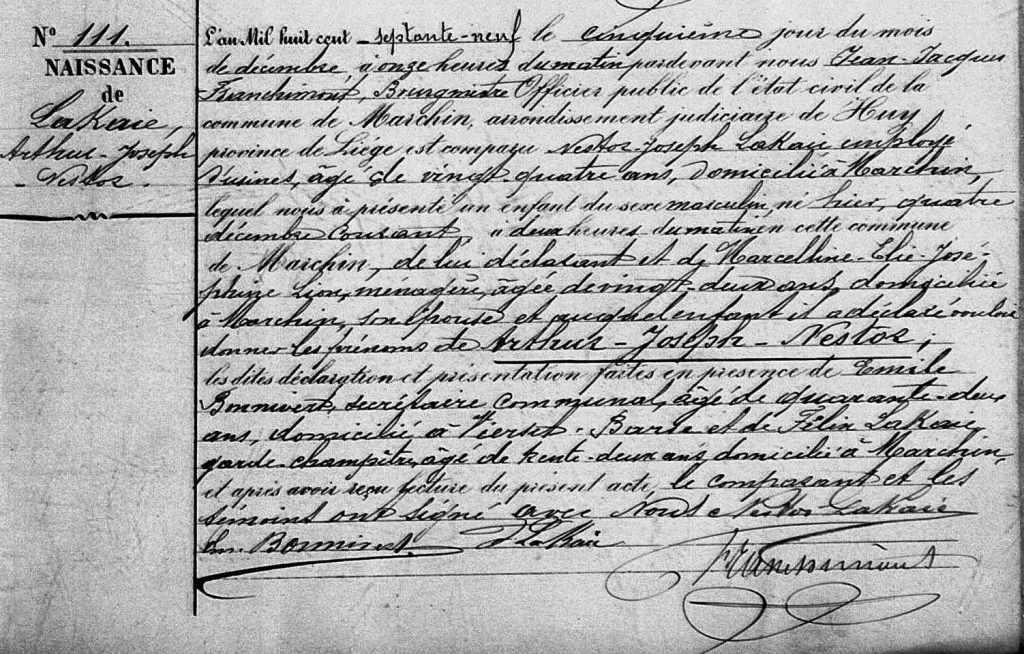 N° 111.
NAISSANCE
de
LaKaie,
Arthur-Joseph
-Nestor.
L'an Mil huit cent septante-neuf le cinquième jour du mois
de décembre, à onze heures du matin pardevant nous Jean-Jacques
Franchimont, Bourgmestre Officier public de l'état civil de la
commune de Marchin, arrondissement judiciaire de Huy
province de Liége est comparu Nestor-Joseph LaKaie employé
d'usines, âgé de vingt-quatre ans, domicilié à Marchin,
lequel nous à présenté un enfant du sexe masculin, né hier, quatre
décembre courant, à deux heures du matin en cette commune
de Marchin, de lui déclarant et de Marcelline-Elie-José-
phine Lion, menagère, âgée de vingt-deux ans, domiciliée
à Marchin, son épouse et auquel enfant il a déclaré vouloir
donner les prénoms de Arthur-Joseph-Nestor;
les dites déclaration et présentation faites en présence de Emile
Bonnivert, secrétaire communal, âgé de quarante-deux
ans, domicilié à Vierset-Barse et de Félix LaKaie,
garde-champêtre, âgé de trente-deux ans, domicilié à Marchin,
et après avoir reçu lecture du présent acte, le comparant et les
témoins ont signé avec Nous Nestor LaKaie
Em. Bonnivert. F LaKaie
Franchimont